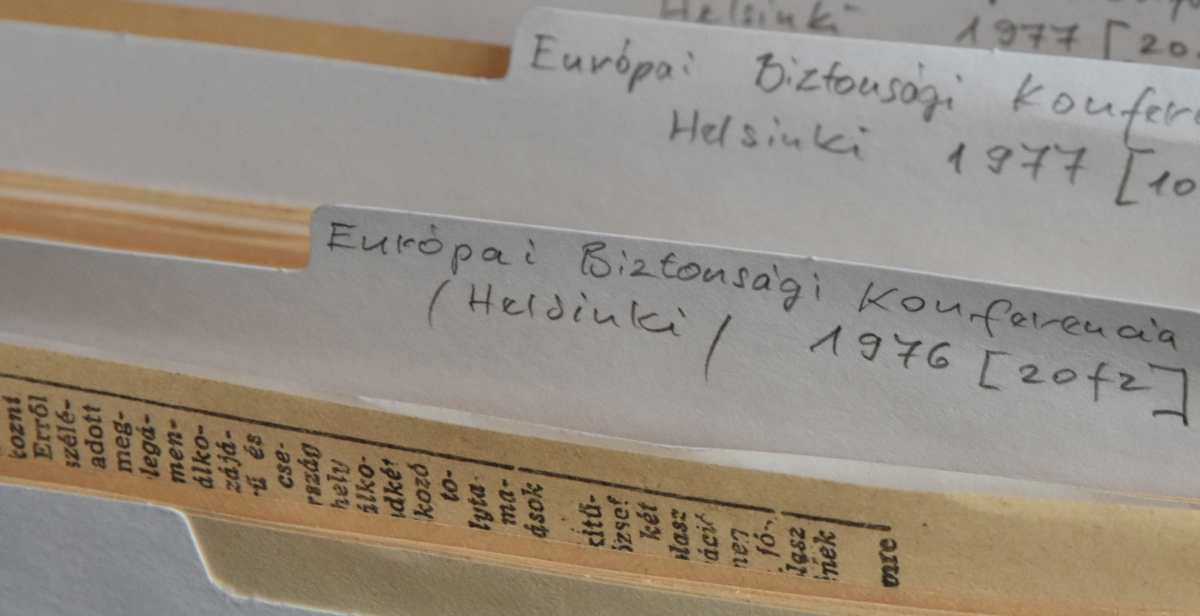 Helsinki 1977 [20
Európai Biztonsági Konfere
Helsinki 1977 [10
Európai Biztonsági Konferencia
(Helsinki) 1976 [20fz]
kozni
Erről
szélé-
adott
meg-
legá-
men-
álko-
zájá-
ű és
cse-
rszág
hely
álko-
dkét
kozó
to-
lyta-
ma-
ások
kitü-
két
lasz
áció
ne?
fó-
lasz
nek
mre